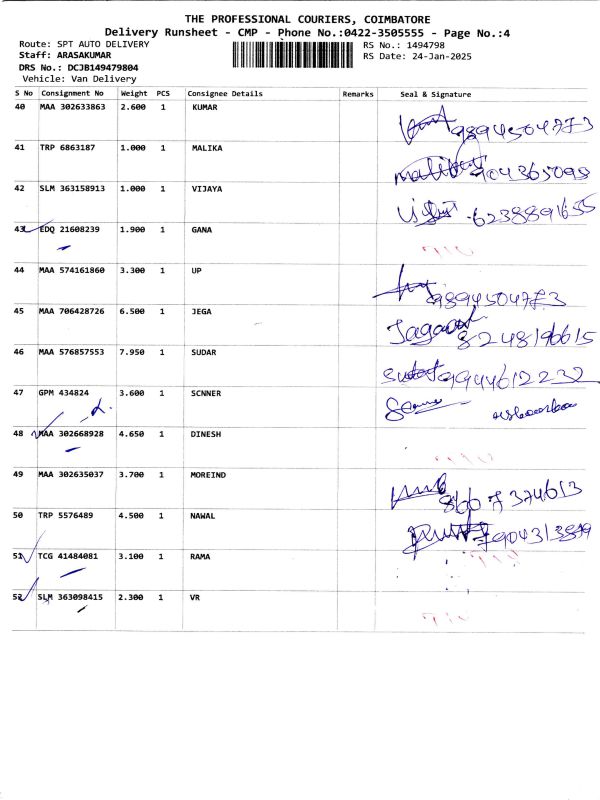 THE PROFESSIONAL COURIERS, COIMBATORE
Delivery Runsheet - CMP - Phone No.:0422-3505555 - Page No.:4
Route: SPT AUTO DELIVERY RS No.: 1494798
Staff: ARASAKUMAR RS Date: 24-Jan-2025
DRS No.: DCJB149479804
Vehicle: Van Delivery
S No Consignment No Weight PCS Consignee Details Remarks Seal & Signature
40 MAA 302633863 2.600 1 KUMAR
41 TRP 6863187 1.000 1 MALIKA
42 SLM 363158913 1.000 1 VIJAYA 6238891655
43 EDQ 21608239 1.900 1 GANA
44 MAA 574161860 3.300 1 UP
45 MAA 706428726 6.500 1 JEGA
46 MAA 576857553 7.950 1 SUDAR 9944612232
47 GPM 434824 3.600 1 SCNNER
48 MAA 302668928 4.650 1 DINESH
49 MAA 302635037 3.700 1 MOREIND
50 TRP 5576489 4.500 1 NAWAL
51 TCG 41484081 3.100 1 RAMA
52 SLM 363098415 2.300 1 VR